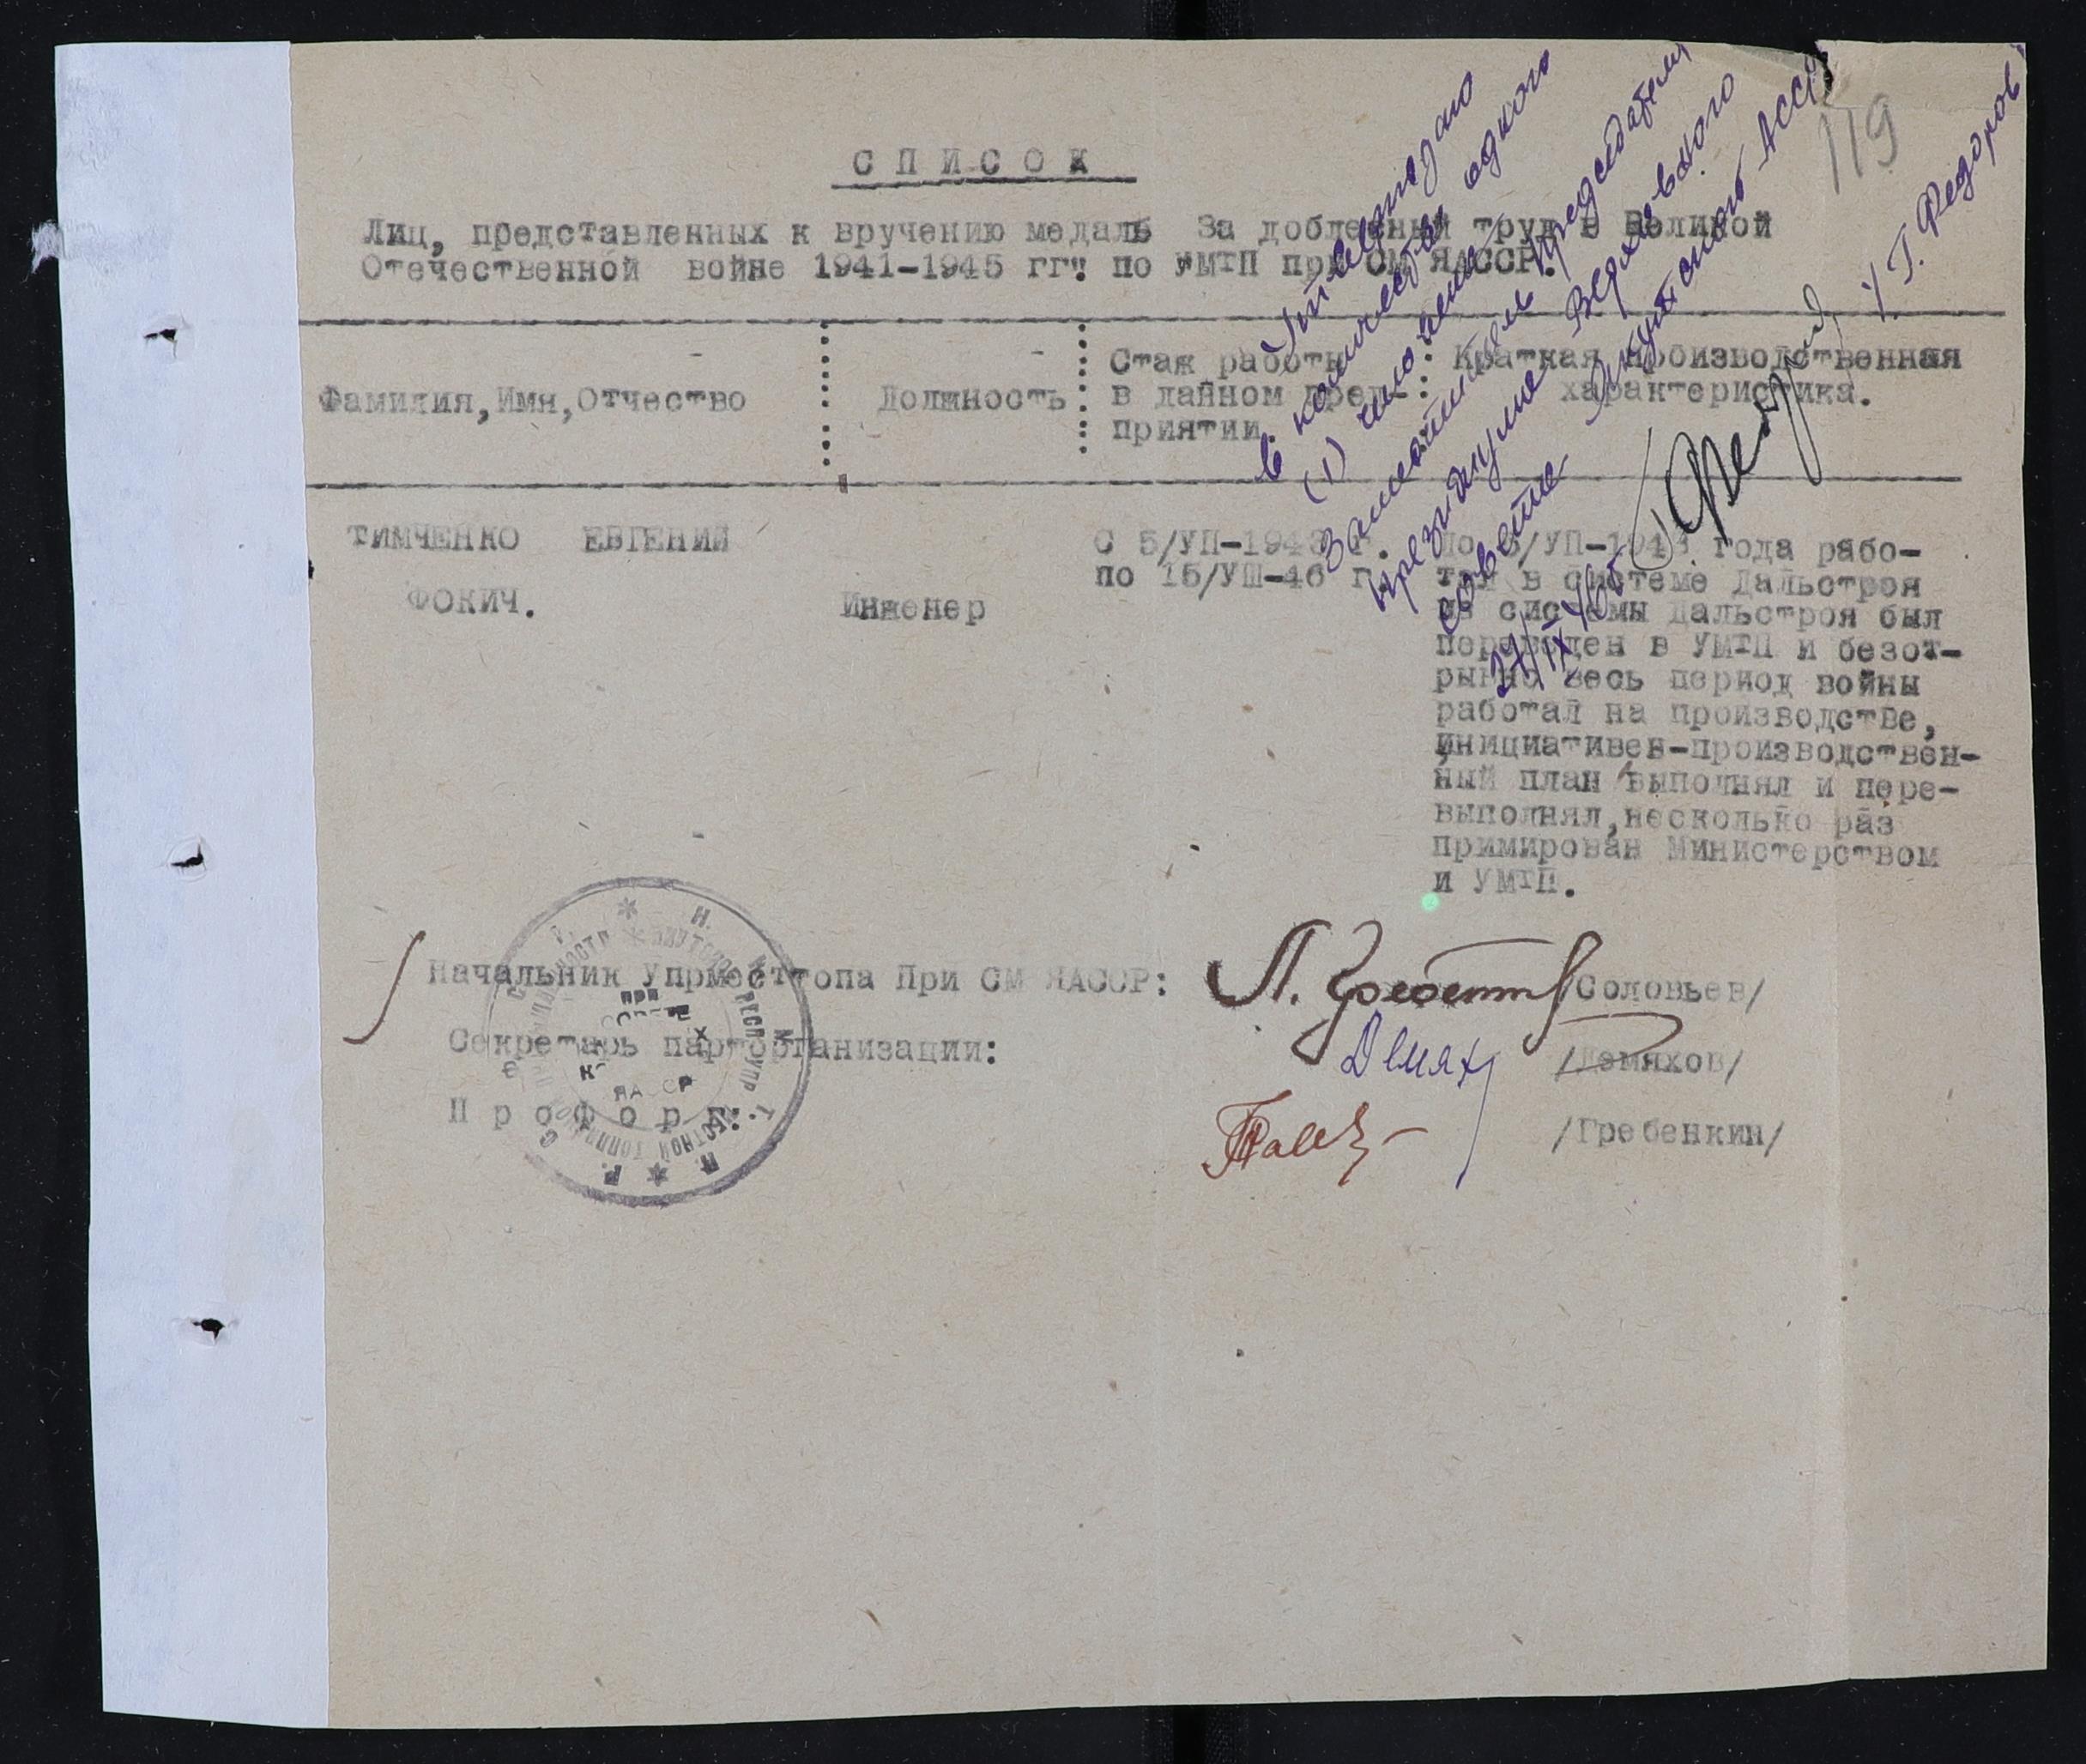 119
СПИСОК
Лиц, представленных к вручению медаль За доблесный труд в Великой
Отечественной войне 1941-1945 гг" по УМТП при СМ ЯАССР.
Фамилия,Имя,Отчество
Должность
Стаж работы
в данном пред-
приятии.
Краткая производственная
характеристика.
ТИМЧЕНКО ЕВГЕНИЙ
ФОКИЧ.
Инженер
С 5/УП-1943 г.
по 15/УШ-46 г.
До 5/УП-1943 года рабо-
тал в системе Дальстроя
из системы Дальстроя был
переведен в УМТП и безот-
рывно весь период войны
работал на производстве,
инициативен-производствен-
ный план выполнял и пере-
выполнял,несколько раз
примирован Министерством
и УМТП.
Утверждаю
в количестве одного
(1) человека
Заместитель Председателя
Президиума Верховного
Совета Якутской АССР
/ Г. Федоров
27/IX 46
Начальник Упрместтопа При СМ ЯАССР: /Соловьев/
Секретарь парторганизации: Демях /Демяхов/
Профорг: /Гребенкин/
ПРИ
ЯАССР